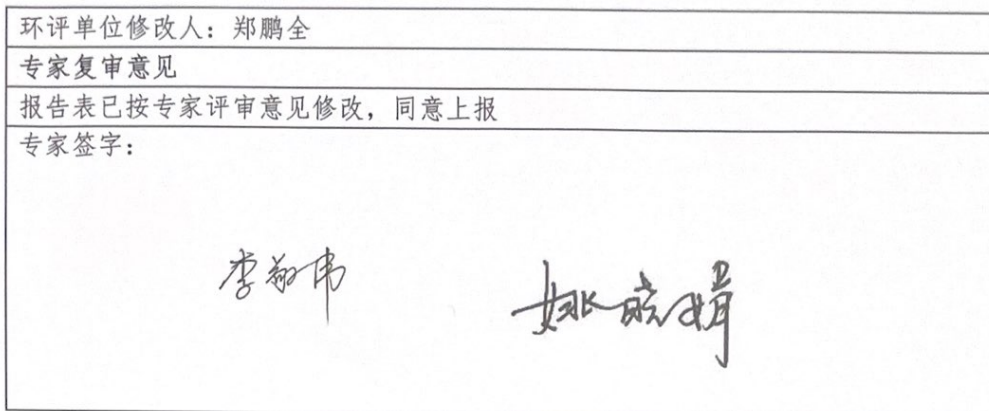 环评单位修改人：郑鹏全
专家复审意见
报告表已按专家评审意见修改，同意上报
专家签字：
姚晓娟